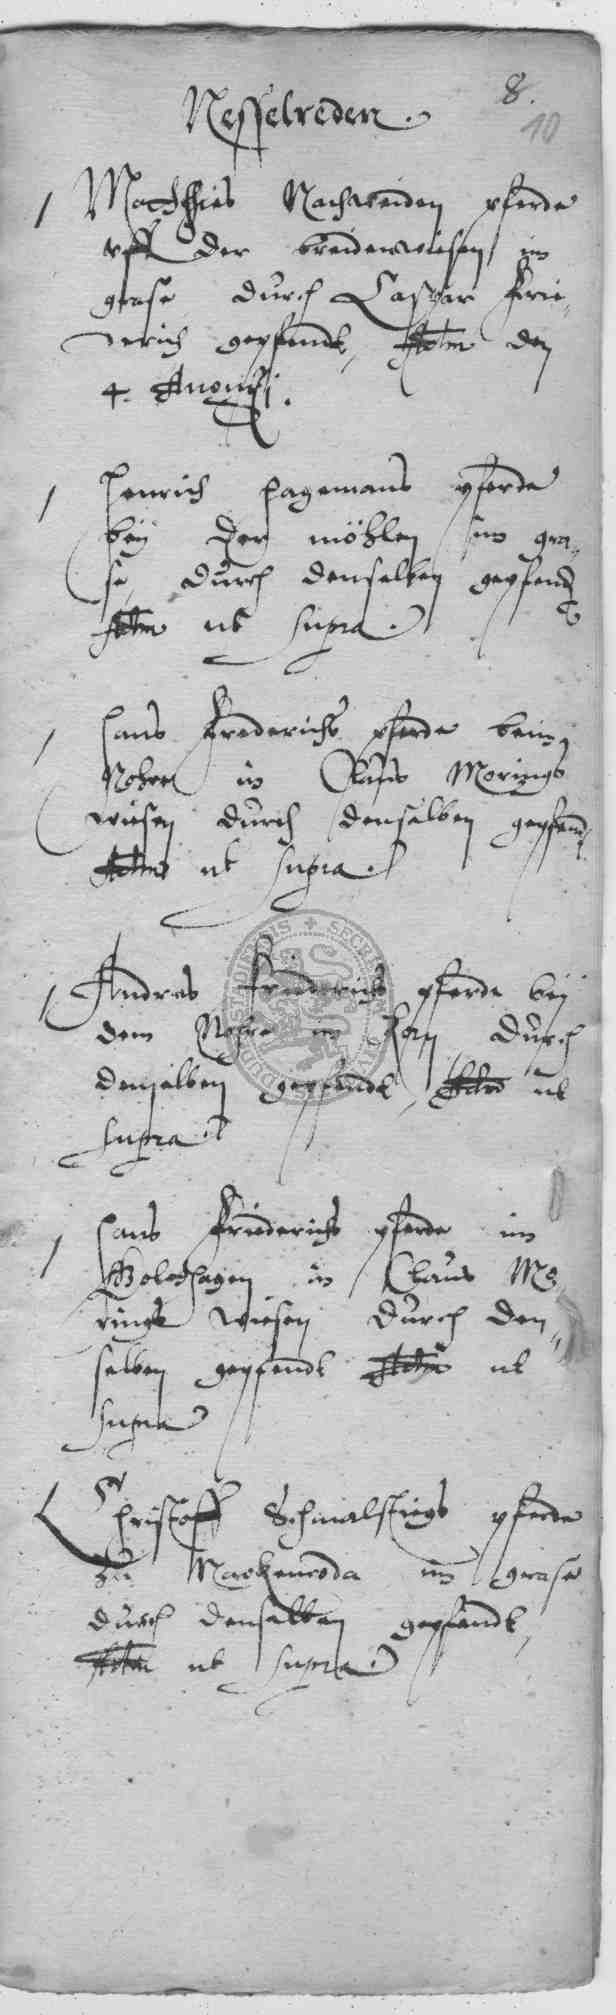 8.
10
Nesselreden.
Matthies Nachweiden pferde
vff der breidenwiesen im
grase durch Caspar Frie„
derich gepfendt, Actum den
4. Augusti.
Henrich Hagemans pferde
beÿ der möhlen im gra„
se, durch denselben gepfendt
Actum ut supra.
Hans Frederichs pferde beim
Rohre in Claus Morings
wiesen durch denselben gepfend
Actum ut supra.
Andres Friederichs pferde beÿ
dem Rohre im Korn durch
denselben gepfendt, Actum ut
supra.
Hans Friederichs pferde im
in Claus Mo„
rings wiesen durch den„
selben gepfendt Actum ut
supra
Christoff Schmalstiegs pferde
zu Nackenroda im grase
durch denselben gepfendt,
Actum ut supra.